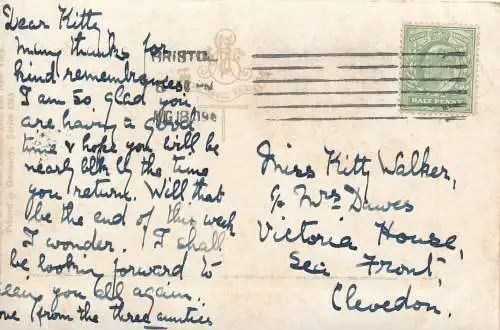 Dear Kitty
Many thanks for
kind remembrances
I am so glad you
are having a good
time & hope you will be
nearly blk by the time
you return. Will that
be the end of this week
I wonder. I shall
be looking forward to
seeing you all again.
love from the three aunties
BRISTOL
HALF PENNY
Miss Kitty Walker,
c/o Mrs Dawes
Victoria House,
Sea Front,
Clevedon.
Printed in Germany